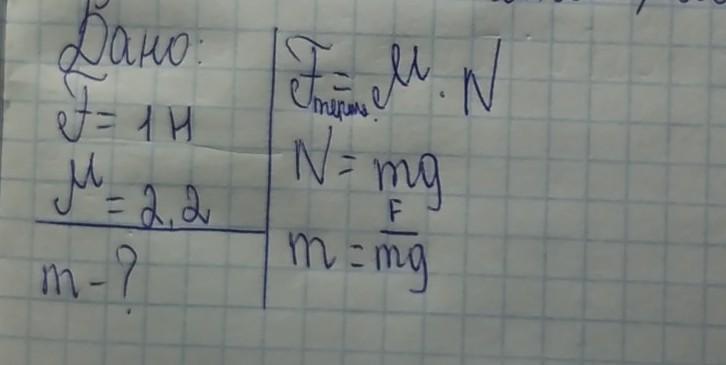 Дано:
F = 1 Н
μ = 2,2
m - ?
Fтрения. = μ · N
N = mg
m = F/mg